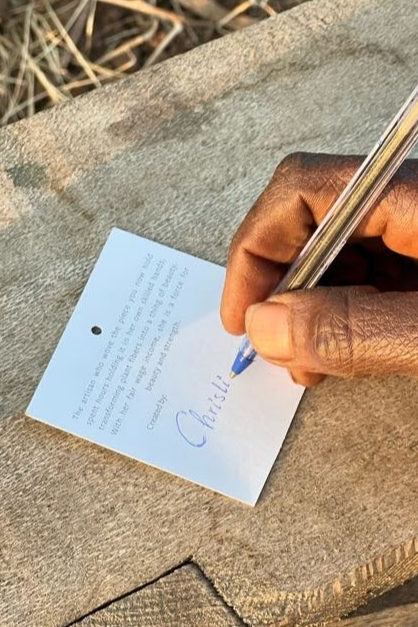 The artisan who wove the piece you now hold
spent hours holding it in her own skilled hands,
transforming plant fibers into a thing of beauty.
With her fair wage income, she is a force for
beauty and strength.
Created by:
Christi